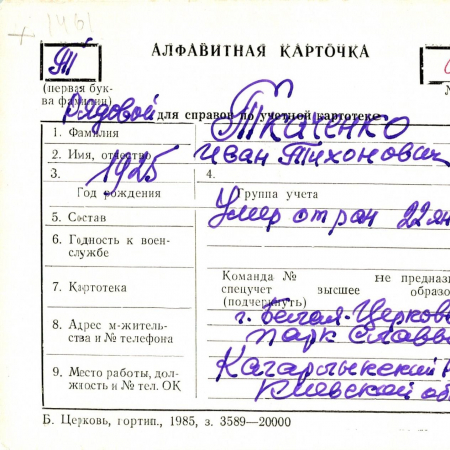 1961
Т
АЛФАВИТНАЯ КАРТОЧКА
(первая бук-
ва фамилии)
Рядовой
для справок по учетной картотеке
1. Фамилия Ткаченко
2. Имя, отчество Иван Тихонович
3. 1925 4.
Год рождения Группа учета
5. Состав Умер от ран 22 ян
6. Годность к воен-
службе
Команда № не предназ
7. Картотека спецучет высшее образо
(подчеркнуть)
г. Белая-Церковь
8. Адрес м-житель-
ства и № телефона
парк славы
Кагарлыкский
9. Место работы, дол-
жность и № тел. ОК
Киевской об
Б. Церковь, гортип., 1985, з. 3589—20000